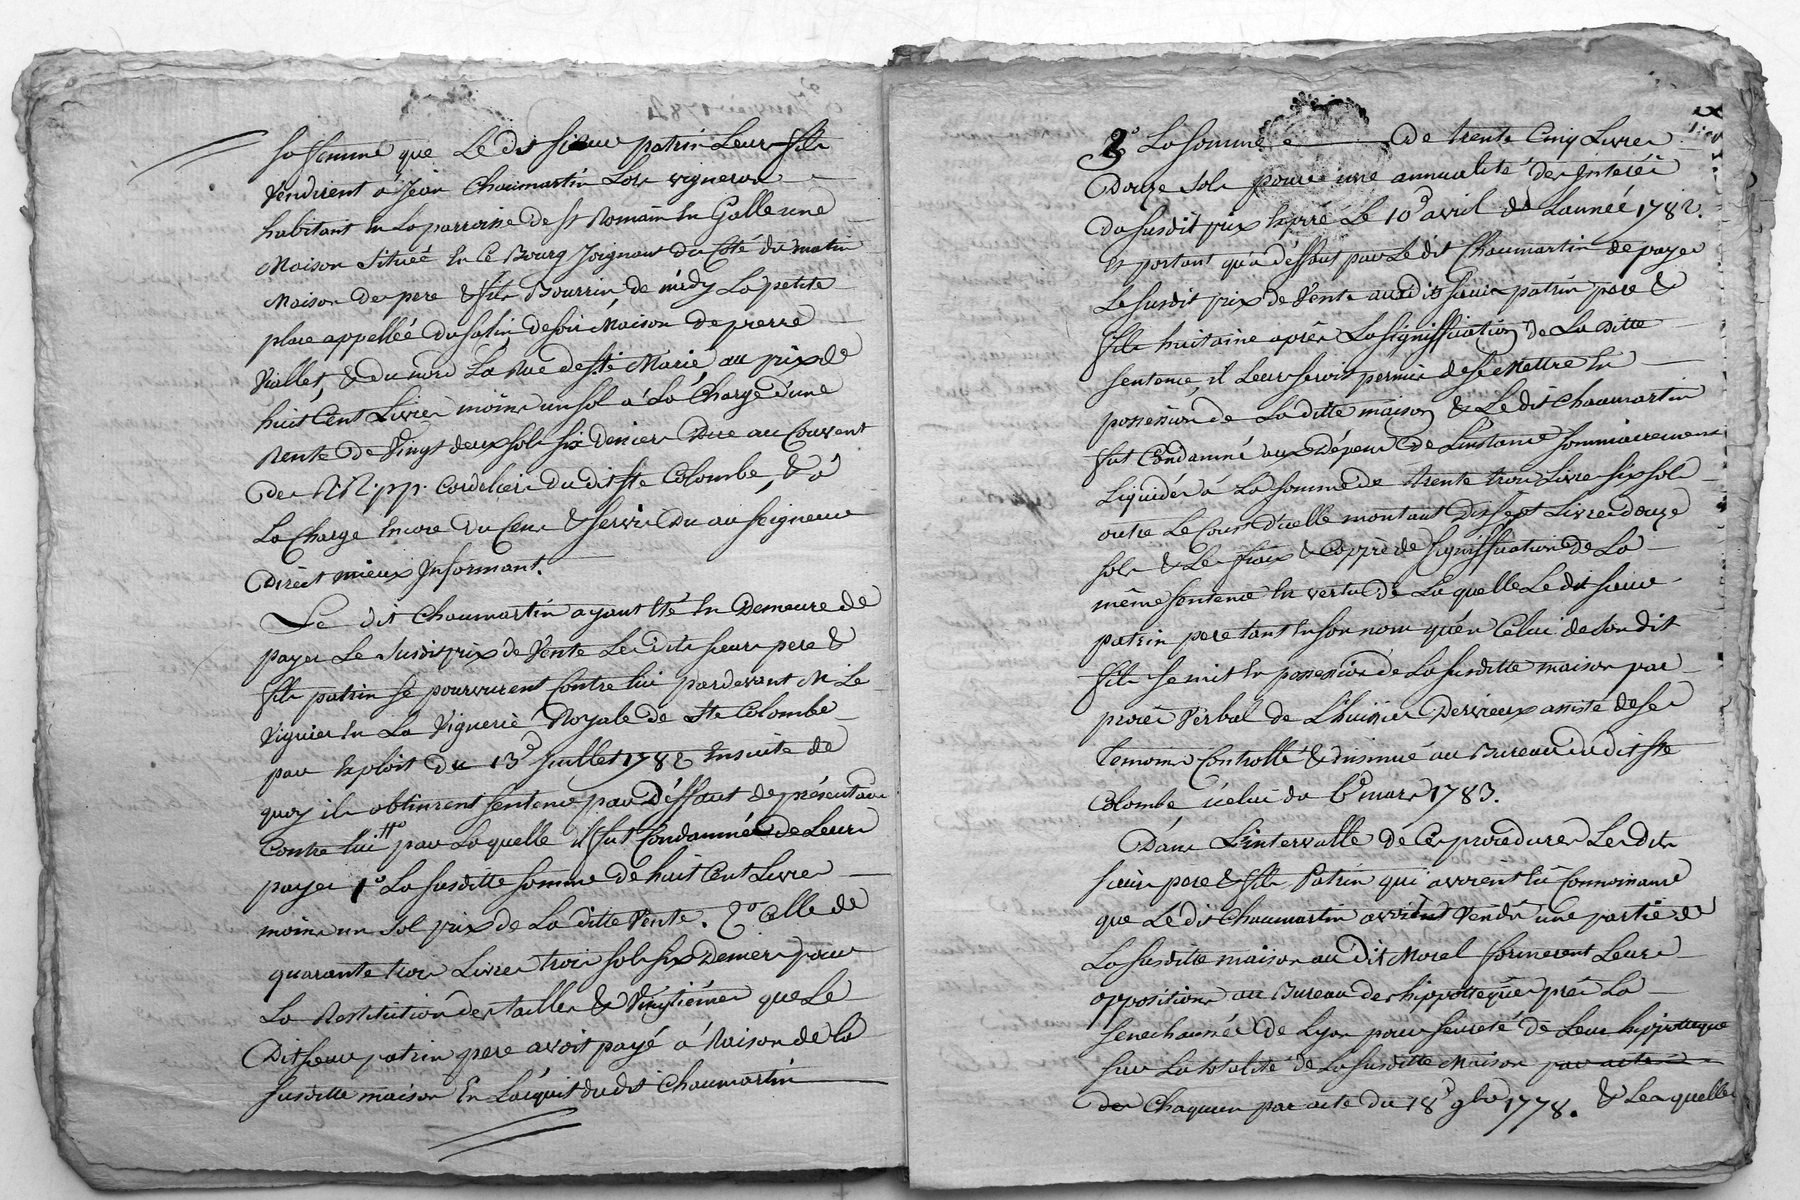 sa femme que Le dit sieur patrin Leur fils
Vendirent à Jean Chaumartin Lors vigneron
habitant en La parroisse de St Romain En Galle une
Maison Située En Ce Bourg Joignant du Coté du matin
Maison des pere & fils Bourrin de midy La petite
place appellée du Salin, de soir Maison de pierre
Viallet, & du nord La Rue de Ste Marie au prix de
huit Cent Livres moins un sol à La Charge d'une
Rente de Vingt deux sols six Deniers Due au Couvent
Des R.R. p.p. Cordeliers du dit Ste Colombe, & à
La Charge Encore du Cens & servis Du au seigneur
Direct mieux Informant.
Le dit Chaumartin ayant Eté En Demeure de
payer Le susdit prix de Vente Les dits sieurs pere &
fils patrin se pourvurent Contre lui pardevant M. Le
Viguier En La Viguerie Royale de Ste Colombe
par Exploit Du 13e Juillet 1782 Ensuite de
quoy ils obtinrent sentence par Déffaut de présentaon
Contre lui par Laquelle il fut Condamné de Leur
payer 1o La susditte somme de huit Cent Livres
moins un sol prix de La ditte Vente. 2o Celle de
quarante trois Livres trois sols six Deniers pour
La Restitution des tailles & Vingtiémes que Le
Dit sieur patrin pere avoit payé à Raison de la
susditte maison En L'acquit du dit Chaumartin
3o La somme de trente Cinq Livres
Douze sols pour une annualité des Interéts
Du susdit prix Expiré Le 10e avril de L'année 1782.
Et portant qu'à déffaut par Le dit Chaumartin de payer
Le susdit prix de Vente auxdits sieurs patrin pere &
fils huitaine après La signiffication de La ditte
sentence, il Leur seroit permis de se Mettre En
possession de La ditte maison & Le dit Chaumartin
fut Condamné aux Dépens de L'instance sommairement
Liquidés à La somme de trente trois Livres six sols
outre Le Cout d'icelle montant dix sept Livres douze
sols & Les frais & Coppie de signiffication de La
même sentence En vertu de Laquelle Le dit sieur
patrin pere tant En son nom qu'en Celui de son dit
fils se mit En possession de La susditte maison par
procès Verbal de L'huissier Dervieux assisté de ses
temoins Controllé & insinué au Bureau du dit Ste
Colombe icelui du 6e mars 1783.
Dans L'intervalle de Ces procédures Les dits
sieurs pere & fils Patrin qui avoient Eu Connoissance
que Le dit Chaumartin avoit Vendu une partie de
La susditte maison au dit Morel formerent Leurs
oppositions au Bureau des hippotteques près La
Senechaussée de Lyon pour sureté de Leur hippotteque
sur La totalité de La susditte Maison par acte
de Chaqun par acte du 18e 9bre 1778. & Lesquelles